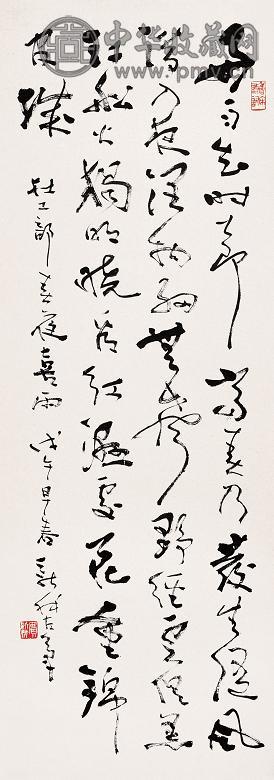 中华收藏网
好雨知時節當春乃發生隨風
潛入夜潤物細無聲野徑雲俱黑
江船火獨明曉看紅濕處花重錦
官城
杜工部春夜喜雨戊午早春新我左筆